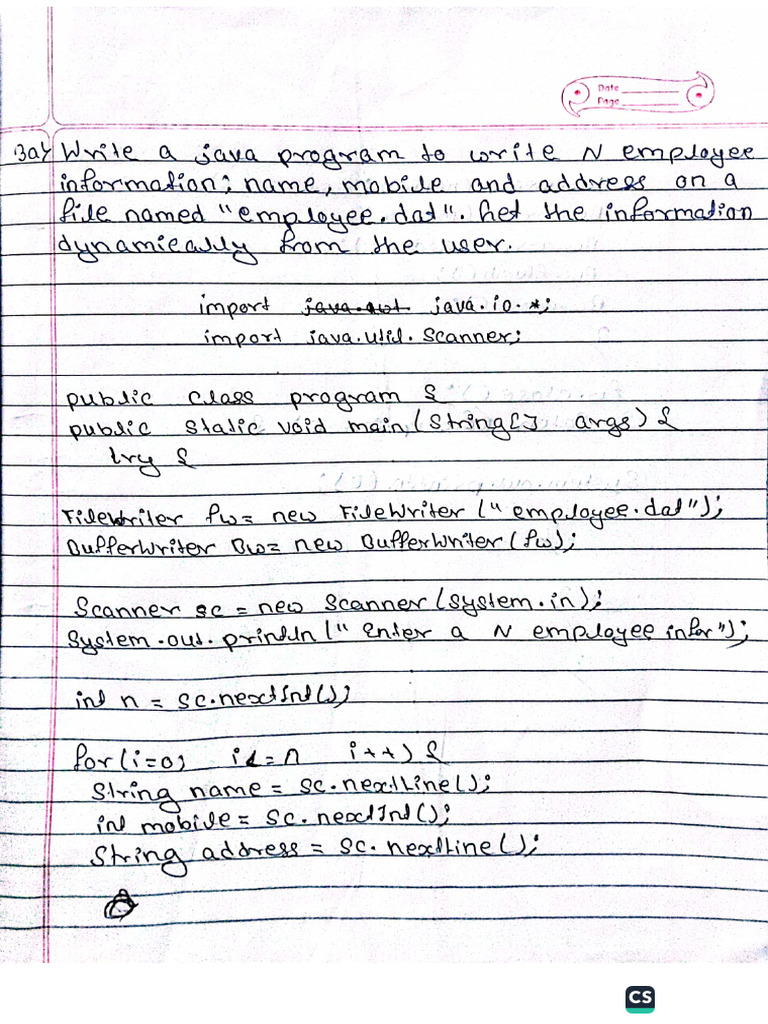 Date
Page
3a) Write a java program to write N employee
information; name, mobile and address on a
file named "employee.dat". Let the information
dynamically from the user.
import java.awt java.io.*;
import java.util.Scanner;
public class program {
public static void main(String[] args) {
try {
FileWriter fw= new FileWriter ("employee.dat");
BufferWriter Bw= new BufferWriter(fw);
Scanner sc = new Scanner(System.in);
System.out.println("Enter a N employee infor");
int n = sc.nextInt();
for(i=0; i<=n i++) {
String name = sc.nextLine();
int mobile= sc.nextInt();
String address = sc.nextLine();
CS